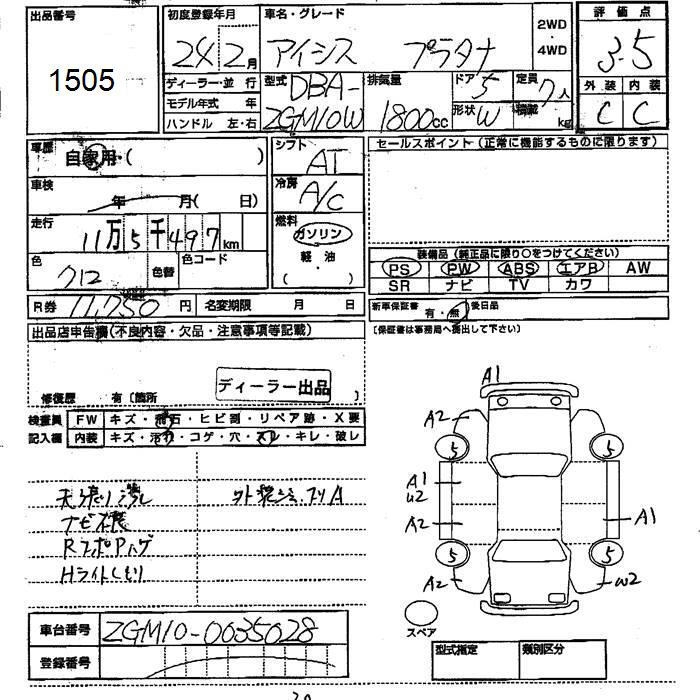 出品番号
1505
初度登録年月
24 2月
車名・グレード
アイシス プラタナ
2WD
・
4WD
評価点
3.5
外装 内装
C C
ディーラー・並行
モデル年式 年
ハンドル 左・右
型式
DBA-
ZGM10W
排気量
1800cc
ドア 5
形状 W
定員 7人
積載 kg
車歴
自家用・( )
車検
年 月( 日)
走行
11万5千497km
色
712
色替
色コード
シフト
AT
冷房
A/C
燃料
ガソリン
・
軽・油
( )
セールスポイント(正常に機能するものに限ります)
装備品(純正品に限り○をつけてください)
PS PW ABS エアB AW
SR ナビ TV カワ
R券 11,750円
名変期限 月 日
新車保証書 有・無
後日品
(保証書は事務局へ提出して下さい)
出品店申告欄(不良内容・欠品・注意事項等記載)
ディーラー出品
修復歴 有〔箇所
検査員
記入欄
FW キズ・飛石・ヒビ割・リペア跡・X要
内装 キズ・汚れ・コゲ・穴・スレ・キレ・破レ
天張り
ナビ
HライトくもりA1
A2
5
5
A1
U2
A2
A1
5
5
A2
W2
スペア
車台番号
ZGM10-0035028
登録番号
型式指定
類別区分